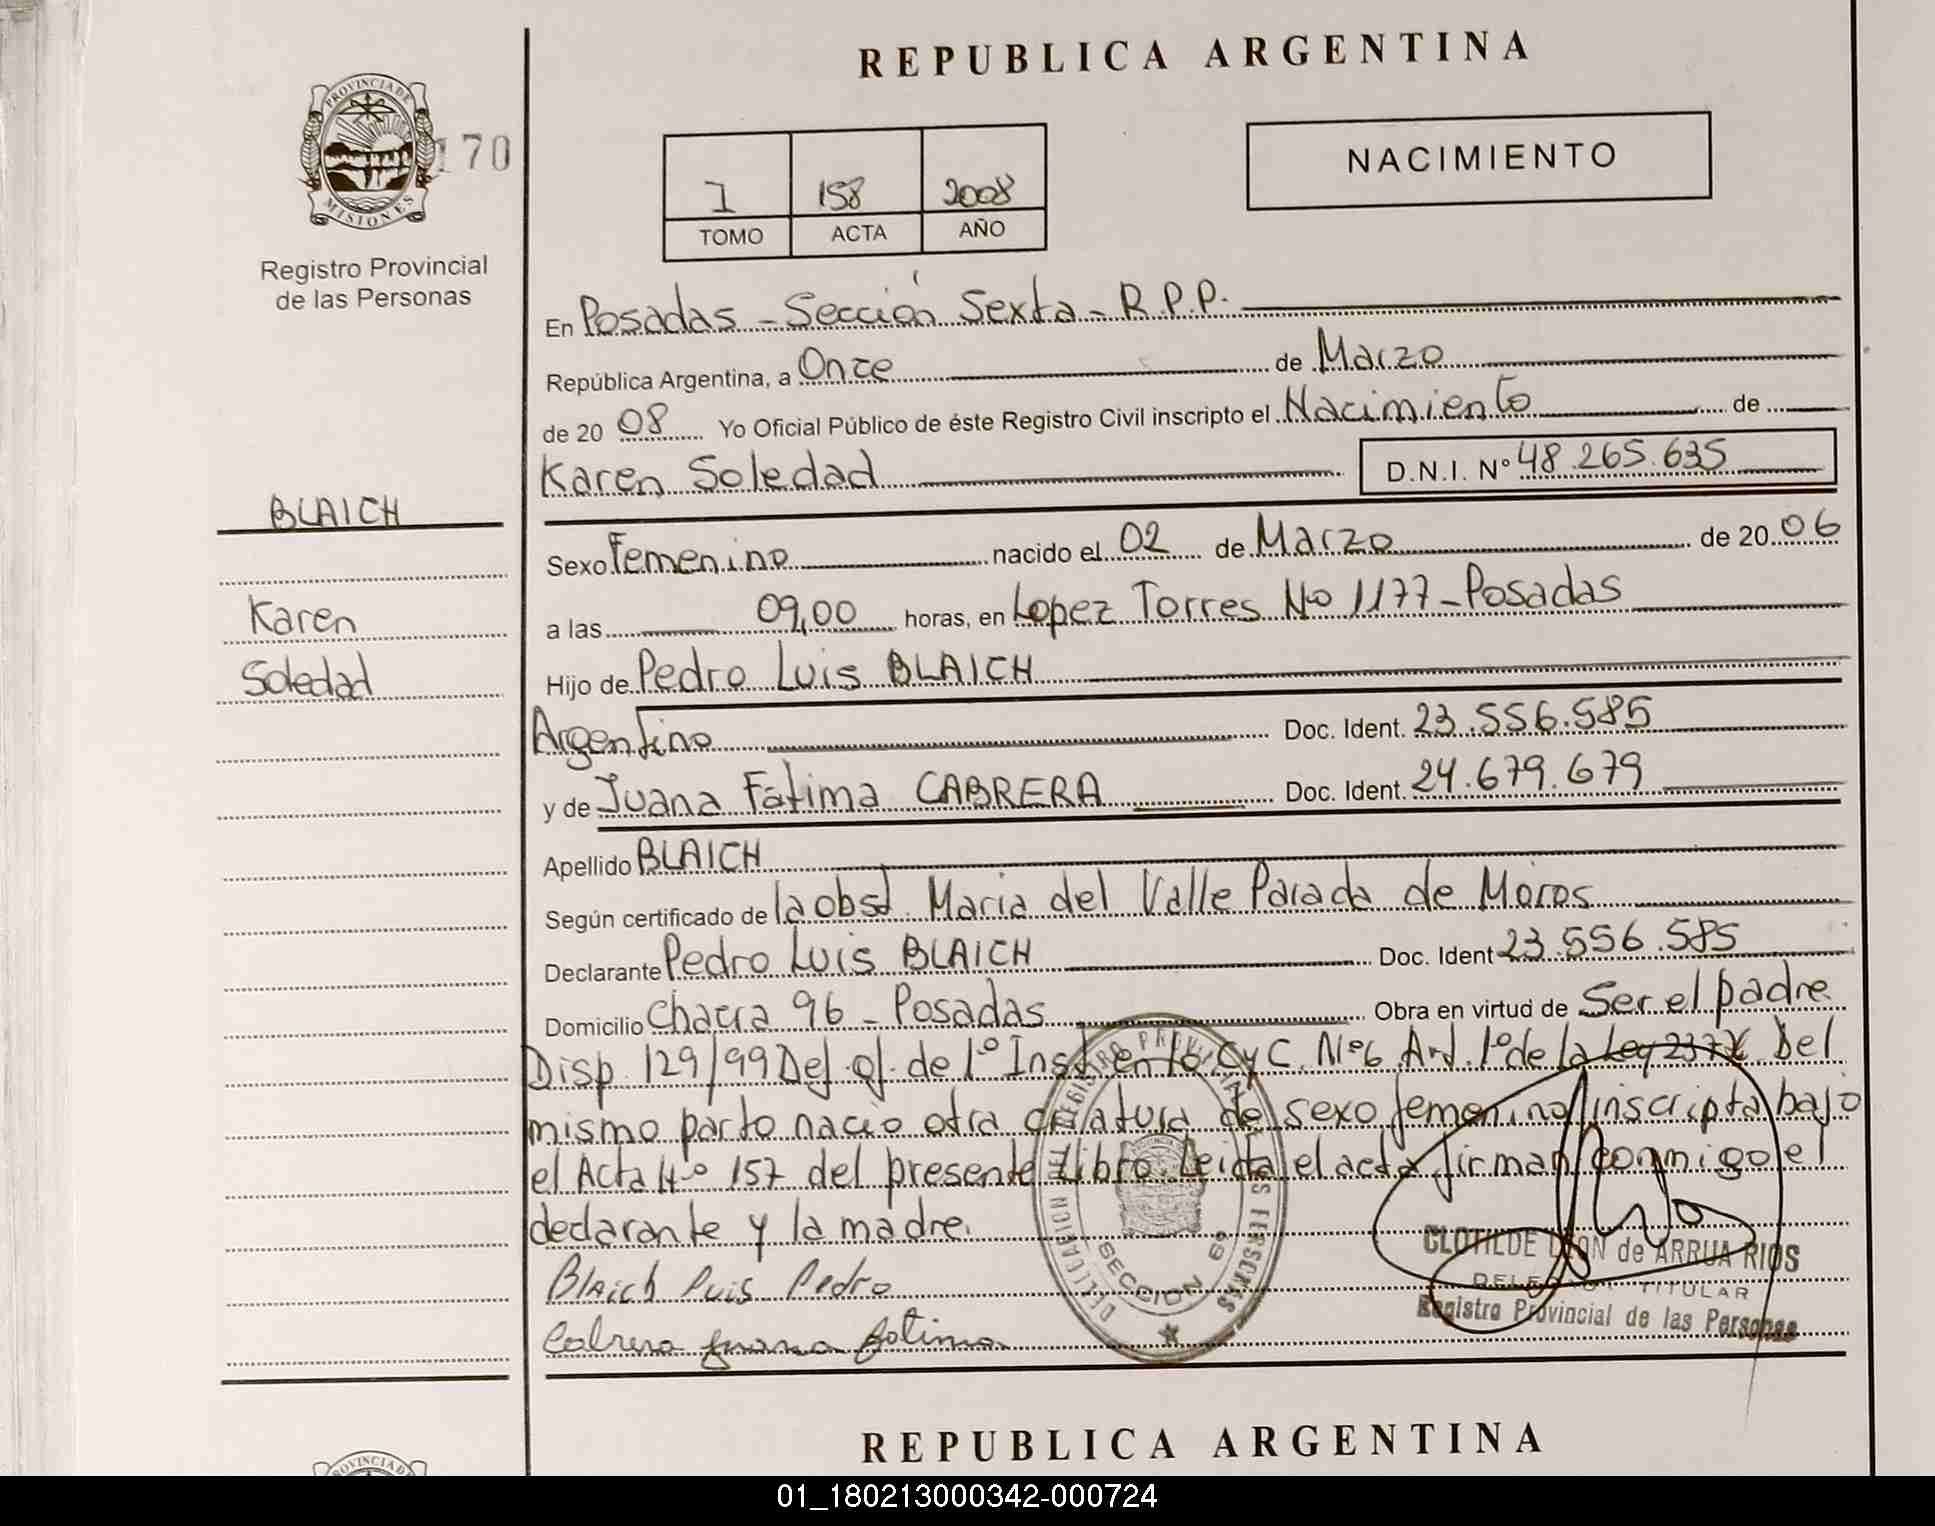 REPUBLICA ARGENTINA
PROVINCIA DE
MISIONES
170
Registro Provincial
de las Personas
I 158 2008
TOMO ACTA AÑO
NACIMIENTO
En Posadas - Sección Sexta - R.P.P.
República Argentina, a Once de Marzo
de 20 08 Yo Oficial Público de éste Registro Civil inscripto el Nacimiento de
Karen Soledad D.N.I. Nº 48.265.635
BLAICH
Karen
Soledad
Sexo Femenino nacido el 02 de Marzo de 20 06
a las 09,00 horas, en Lopez Torres No 1177 - Posadas
Hijo de Pedro Luis BLAICH
Argentino Doc. Ident. 23.556.585
y de Juana Fátima CABRERA Doc. Ident. 24.679.679
Apellido BLAICH
Según certificado de la obst. Maria del Valle Parada de Moros
Declarante Pedro Luis BLAICH Doc. Ident 23.556.585
Domicilio Chacra 96 - Posadas Obra en virtud de Ser el padre
Disp. 129/99 Def. of. de 1º Inst. en lo C y C. Nº 6 Art. 1º de la Ley Del
mismo parto nacio otra criatura de sexo femenino inscripta bajo
el Acta Nº 157 del presente Libro. Leida el acta firman conmigo el
declarante y la madre.
Blaich Luis Pedro
Cabrera Juana Fatima
DELEGACION DEL REGISTRO PROVINCIAL DE LAS PERSONAS
SECCION 6ª
CLOTILDE LEON de ARRUA RIOS
DELEGADA TITULAR
Registro Provincial de las Personas
REPUBLICA ARGENTINA
PROVINCIA DE
01_180213000342-000724